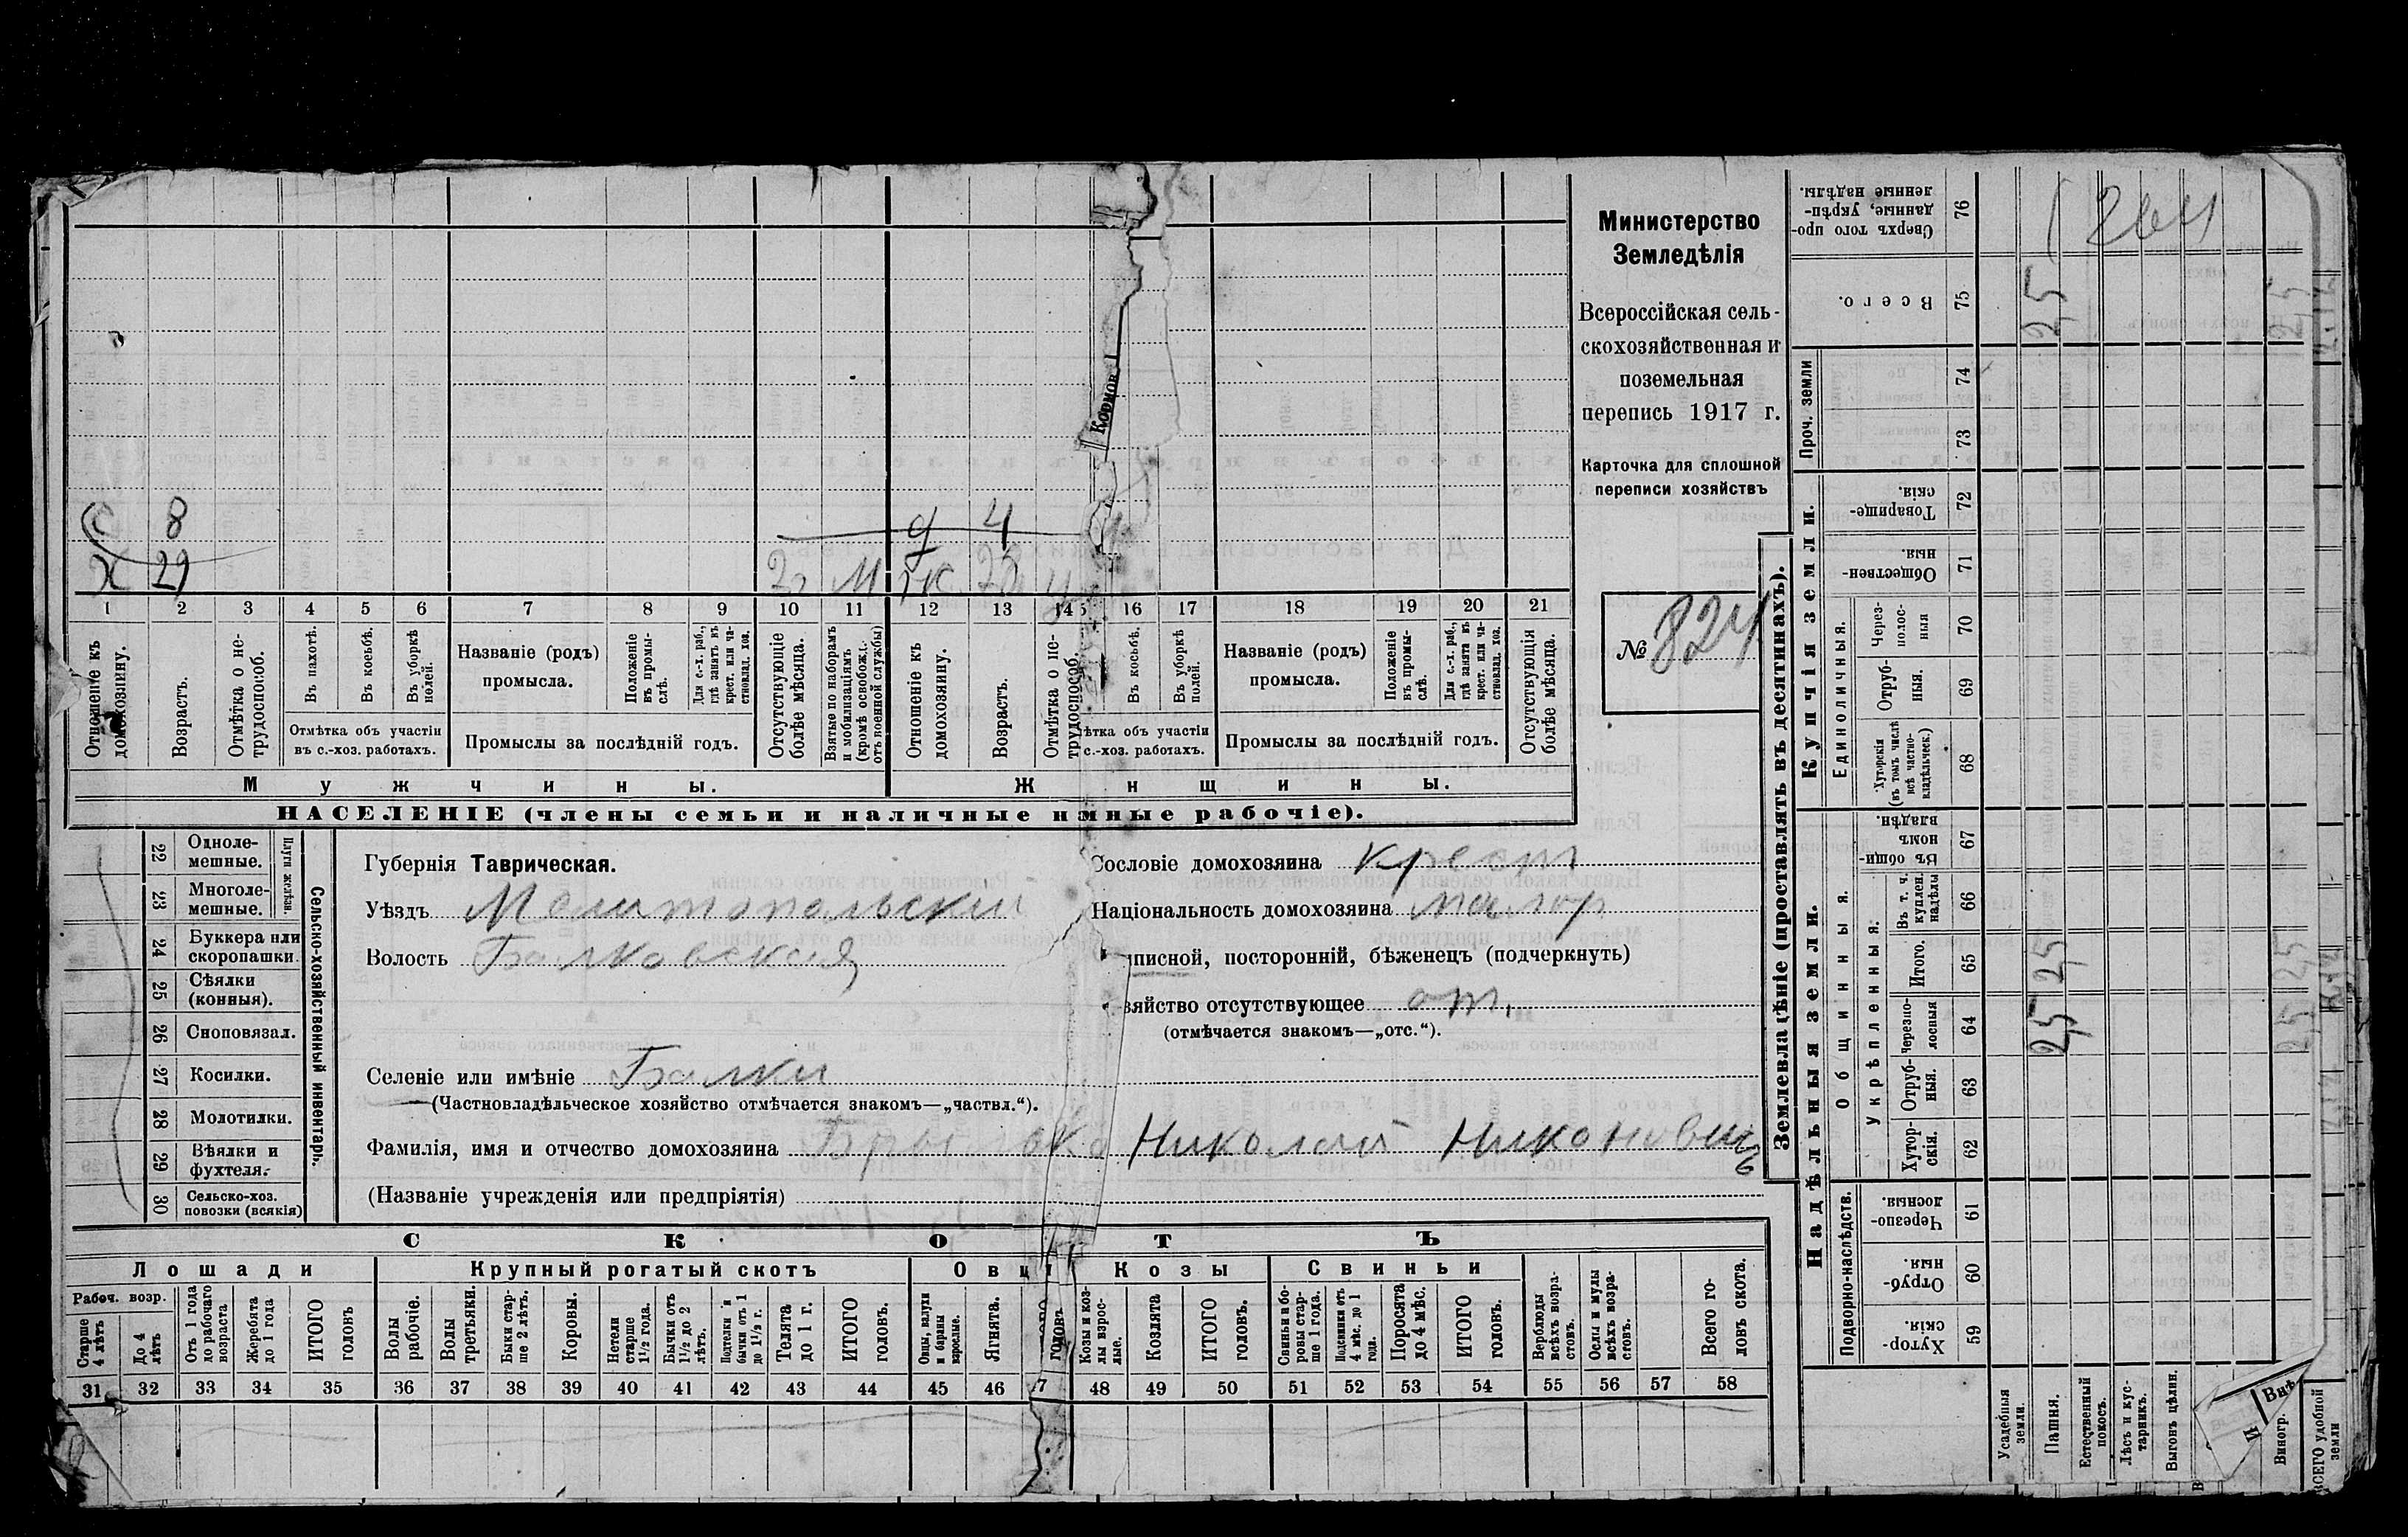 С 8
ч 4
Х 29 М Ж 28
1 2 3 4 5 6 7 8 9 10 11 12 13 14 16 17 18 19 20 21
Отношеніе къ домохозяину.
Возрастъ.
Отмѣтка о нетрудоспособ.
Въ пахотѣ.
Въ косьбѣ.
Въ уборкѣ полей.
Отмѣтка объ участіи
въ с.-хоз. работахъ.
Названіе (родъ)
промысла.
Положеніе въ промыслѣ.
Для с.-х. раб., гдѣ занятъ въ крест. или частновлад. хоз.
Промыслы за послѣдній годъ.
Отсутствующіе болѣе мѣсяца.
Взятые по наборамъ и мобилизаціямъ (кромѣ освобожд. отъ военной службы)
Отношеніе къ домохозяину.
Возрастъ.
Отмѣтка о нетрудоспособ.
Въ косьбѣ.
Въ уборкѣ полей.
ѣтка объ участіи
с.-хоз. работахъ.
Названіе (родъ)
промысла.
Положеніе въ промыслѣ.
Для с.-х. раб., гдѣ занята въ крест. или частновлад. хоз.
Промыслы за послѣдній годъ.
Отсутствующія болѣе мѣсяца.
Мужчины.
Ж нщины.
НАСЕЛЕНІЕ (члены семьи и наличные н мные рабочіе).
Кормов
Министерство
Земледѣлія
Всероссійская сель-
скохозяйственная и
поземельная
перепись 1917 г.
Карточка для сплошной
переписи хозяйствъ
№ 824
22 Одноле-
мешные.
23 Многоле-
мешные.
Плуги желѣзн.
24 Буккера или
скоропашки.
25 Сѣялки
(конныя).
26 Сноповязал.
27 Косилки.
28 Молотилки.
29 Вѣялки и
фухтеля.
30 Сельско-хоз.
повозки (всякія)
Сельско-хозяйственный инвентарь.
Губернія Таврическая.
Уѣздъ Мелитопольский
Волость Балковская
Селеніе или имѣніе Балки
(Частновладѣльческое хозяйство отмѣчается знакомъ—„частвл.“).
Фамилія, имя и отчество домохозяина Николай Никоновичъ
(Названіе учрежденія или предпріятія)
Сословіе домохозяина крест
Національность домохозяина малор
писной, посторонній, бѣженецъ (подчеркнуть)
зяйство отсутствующее от.
(отмѣчается знакомъ—„отс.“).
СКОТЪ
Лошади
Крупный рогатый скотъ
Овц
Козы
Свиньи
Рабоч. возр.
Старше 4 лѣтъ
До 4 лѣтъ
Отъ 1 года до рабочаго возраста
Жеребята до 1 года
ИТОГО головъ
Волы рабочіе.
Волы третьяки.
Быки старше 2 лѣтъ.
Коровы.
Нетели старше 1½ года.
Бычки отъ 1½ до 2 лѣтъ.
Подтелки и бычки отъ 1 до 1½ г.
Телята до 1 г.
ИТОГО головъ.
Овцы, валухи и бараны взрослые.
Ягнята.
головъ
Козы и козлы взрослые.
Козлята
ИТОГО головъ.
Свиньи и боровы старше 1 года.
Подсвинки отъ 4 мѣс. до 1 года.
Поросята до 4 мѣс.
ИТОГО головъ.
Верблюды всѣхъ возрастовъ.
Ослы и мулы всѣхъ возрастовъ.
Всего головъ скота.
31 32 33 34 35 36 37 38 39 40 41 42 43 44 45 46 7 48 49 50 51 52 53 54 55 56 57 58
Землевладѣніе (проставлять въ десятинахъ).
Сверхъ того проданные, укрѣпленные надѣлы. 76
264
Всего. 75
25
Проч. земли
74
73
Купчія земли.
Товарищескія. 72
Общественныя 71
Единоличныя.
Черезполосныя 70
Отрубныя. 69
Хуторскія (въ томъ числѣ всѣ частновладѣльческ.) 68
Надѣльныя земли.
Общинныя.
Въ общинномъ владѣн. 67
Укрѣпленныя.
Въ т. ч. куплен. надѣлы 66
Итого. 65
25
Черезполосныя 64
25
Отрубныя. 63
Хуторскія. 62
Подворно-наслѣдств.
Черезполосныя 61
Отрубныя. 60
Хуторскія. 59
Усадебныя земли.
Пашня.
Естественный покосъ.
Лѣсъ и кустарникъ.
Выгонъ цѣлин.
Внѣ
И
Виногр.
ВСЕГО удобной земли